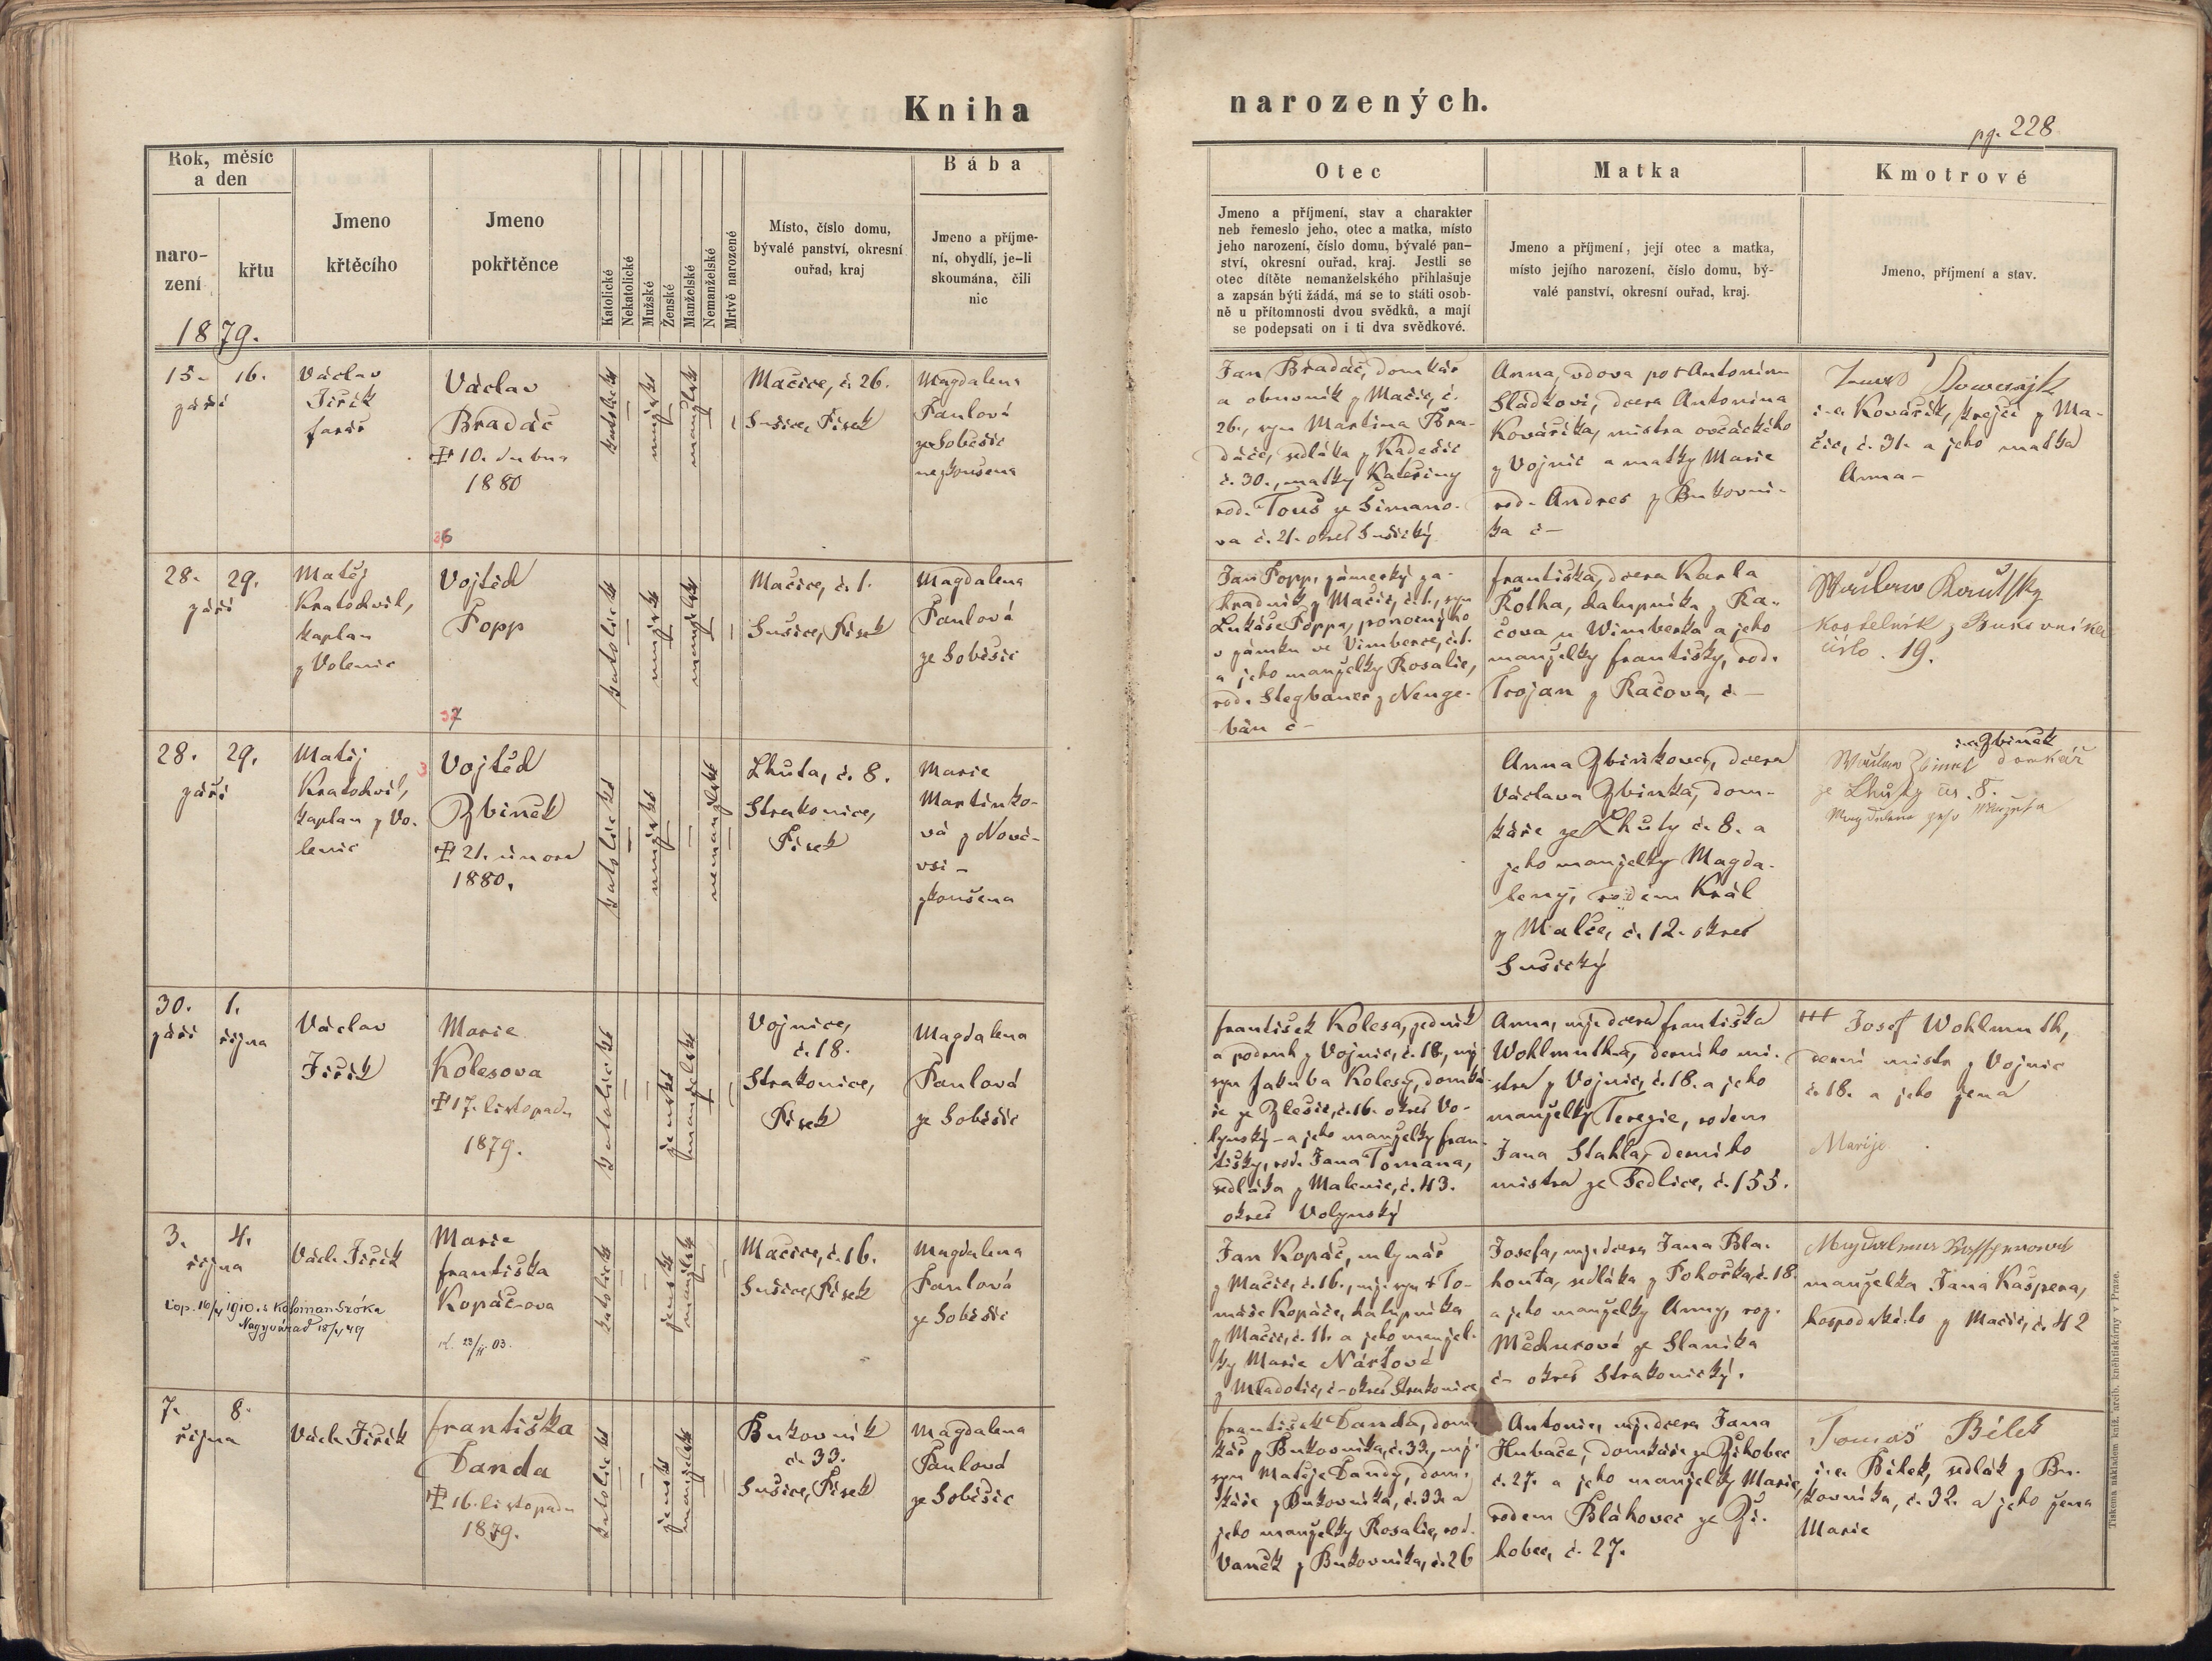 Kniha
narozených.
pg. 228
Rok, měsíc
a den
naro-
zení
křtu
1879.
Jmeno
křtěcího
Jmeno
pokřtěnce
Katolické
Nekatolické
Mužské
Ženské
Manželské
Nemanželské
Mrtvě narozené
Místo, číslo domu,
bývalé panství, okresní
ouřad, kraj
Bába
Jmeno a příjme-
ní, obydlí, je-li
skoumána, čili
nic
Otec
Jmeno a příjmení, stav a charakter
neb řemeslo jeho, otec a matka, místo
jeho narození, číslo domu, bývalé pan-
ství, okresní ouřad, kraj. Jestli se
otec dítěte nemanželského přihlašuje
a zapsán býti žádá, má se to státi osob-
ně u přítomnosti dvou svědků, a mají
se podepsati on i ti dva svědkové.
Matka
Jmeno a příjmení, její otec a matka,
místo jejího narození, číslo domu, bý-
valé panství, okresní ouřad, kraj.
Kmotrové
Jmeno, příjmení a stav.
15. 16.
září
Václav
Jiřík
farář
Václav
Bradáč
10. dubna
1880
katolické
mužské
manželské
Mačice, č. 26.
Sušice, Písek
Magdalena
Paulová
ze Soběšic
nezkoušena
Jan Bradáč, domkář
a obuvník z Mačic, č.
26., syn Martina Bra-
dáče, sedláka z Kadešic
č. 30., matky Kateřiny
rod. Touš ze Šimano-
va č. 21. okres Sušický
Anna, vdova po Antonínu
Sládkovi, dcera Antonína
Kováříka, mistra ovčáckého
z Vojnic a matky Marie
rod. Andres z Bukovní-
ka č –
i.e. Kovářík, krejčí z Ma-
čic, č. 31. a jeho matka
Anna –
36
28. 29.
září
Matěj
Kratochvíl,
kaplan
z Volenic
Vojtěch
Popp
katolické
mužské
manželské
Mačice, č. 1.
Sušice, Písek
Magdalena
Paulová
ze Soběšic
Jan Popp, zámecký za-
hradník z Mačic, č. 1., syn
Lukáše Poppa, ponocného
v zámku ve Vimberce, č. 1.
a jeho manželky Rosalie,
rod. Stegbauer z Neuge-
bán č –
Františka, dcera Karla
Rotha, chalupníka z Ra-
čova u Wimberka a jeho
manželky Františky, rod.
Trojan z Račova, č –
Wáclaw Kautsky
kostelník z Bukovníka
číslo. 19.
37
28. 29.
září
Matěj
Kratochvíl,
kaplan z Vo-
lenic
Vojtěch
Zbínek
21. února
1880.
katolické
mužské
nemanželské
Lhuta, č. 8.
Strakonice,
Písek
Marie
Martínko-
vá z Nové-
vsi –
zkoušena
Anna Zbínkova, dcera
Václava Zbínka, dom-
káře ze Lhuty č. 8. a
jeho manželky Magda-
leny, rodem Král
z Malče, č. 12. okres
Sušický
i.e. Zbínek
Wáclaw Zbinek domkář
ze Lhuty čís. 8.
30. 1.
září října
Václav
Jiřík
Marie
Kolesova
17. listopadu
1879.
katolické
ženské
manželské
Vojnice,
č. 18.
Strakonice,
Písek
Magdalena
Paulová
ze Soběšic
František Kolesa, zedník
a podruh z Vojnic, č. 18., mž.
syn Jakuba Kolesy, domká-
ře ze Zlešic, č. 16. okres Vo-
lynský – a jeho manželky Fran-
tišky, rod. Jana Tomana,
sedláka z Malenic, č. 43.
okres Volynský
Anna, mž. dcera Františka
Wohlmutha, derního mi-
stra z Vojnic, č. 18. a jeho
manželky Terezie, rodem
Jana Stahla, derního
mistra ze Sedlice, č. 155.
+++ Josef Wohlmuth,
derní mistr z Vojnic
č. 18. a jeho žena
Marije
3. 4.
října
Václ. Jiřík
Marie
Františka
Kopáčova
katolické
ženské
manželské
Mačice, č. 16.
Sušice, Písek
Magdalena
Paulová
ze Soběšic
Nagyvárad
Jan Kopáč, mlynář
z Mačic, č. 16., mž. syn + To-
máše Kopáče, chalupníka
z Mačic, č. 11. a jeho manžel-
ky Marie Nártové
z Mladotic, č – okres Strakonice
Josefa, mž. dcera Jana Bla-
houta, sedláka z Pohorka, č. 18.
a jeho manželky Anny, roz.
Měchurové ze Slaníka
č – okres Strakonický.
manželka Jana Kašpera,
hospodského z Mačic, č. 42
7. 8.
října
Václ. Jiřík
Františka
Panda
16. listopadu
1879.
katolické
ženské
manželské
Bukovník
č. 33.
Sušice, Písek
Magdalena
Paulová
ze Soběšic
František Panda, dom-
kář z Bukovníka, č. 33., mž.
syn Matěje Pandy, dom-
káře z Bukovníka, č. 33. a
jeho manželky Rosalie, rod.
Vaněk z Bukovníka, č. 26
Antonie, mž. dcera Jana
Hubače, domkáře ze Žihobec
č. 27. a jeho manželky Marie,
rodem Bláhovec ze Ži-
hobec, č. 27.
Tomáš Bílek
i.e. Bílek, sedlák z Bu-
kovníka, č. 32. a jeho žena
Marie
Tiskem a nákladem kníž. arcib. knihtiskárny v Praze.